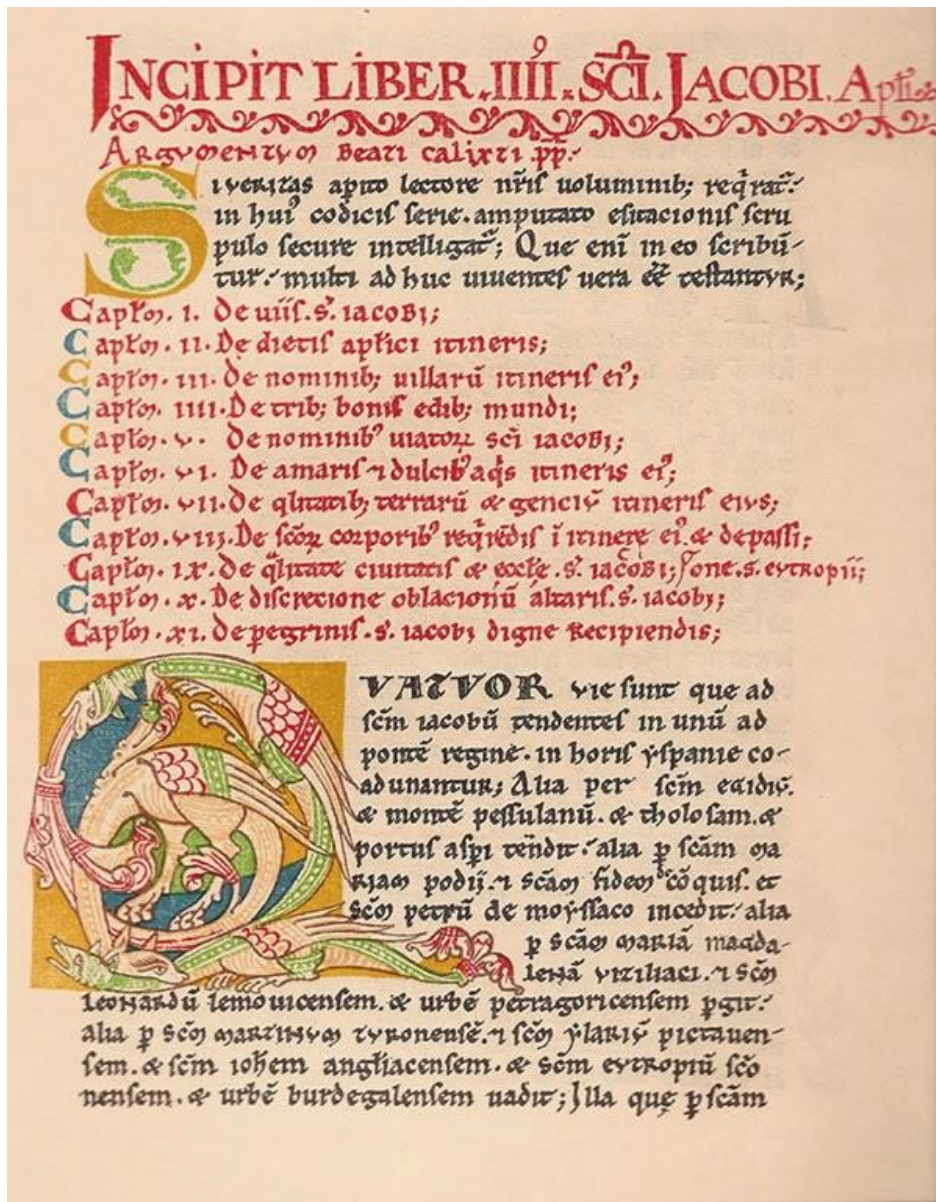 INCIPIT LIBER .IIII. SCI. JACOBI. Aptli
Argumentum Beati calixti .pp.
Si veritas apito lectore nris uoluminib; reqrat.
in hui' codicis serie. amputato esitacionis scru
pulo secure intelligat; Que eni in eo scribū-
tur. multi ad huc uiuentes uera eē testantur;
Captm. I. De uiis. s. iacobi;
Captm. II. De dietis aptici itineris;
Captm. III. De nominib; uillarū itineris ei';
Captm. IIII. De trib; bonis edib; mundi;
Captm. V. De nominib' uiatorꝝ sci iacobi;
Captm. VI. De amaris ⁊ dulcib' aqis itineris ei';
Captm. VII. De qlitatib; terrarū & genciū itineris eius;
Captm. VIII. De scōꝝ corporib' reqrēdis ī itinere ei'. & de passi;
Captm. IX. De qlitate ciuitatis & eccłe. s. iacobi; one. s. eutropii;
Captm. X. De discrecione oblacionū altaris. s. iacobi;
Captm. XI. De pegrinis. s. iacobi digne Recipiendis;
QUATUOR vie sunt que ad
scm iacobū tendentes in unū ad
pontē regine. in horis yspanie co-
adunantur; Alia per scm egidiū.
& montē pessulanū. & tholosam. &
portus aspi tēdit. alia ꝑ scām ma
riam podii. ⁊ scām fidem cōquis. et
scm petrū de moyssaco incedit. alia
ꝑ scām mariā magda-
lenā viziliaci. ⁊ scm
leonardū lemouicensem. & urbē petragoricensem ꝑgit.
alia ꝑ scm martinum turonensē. ⁊ scm ylariū pictauen-
sem. & scm iohem angliacensem. & scm eutropiū scō
nensem. & urbē burdegalensem uadit; Illa quę ꝑ scām